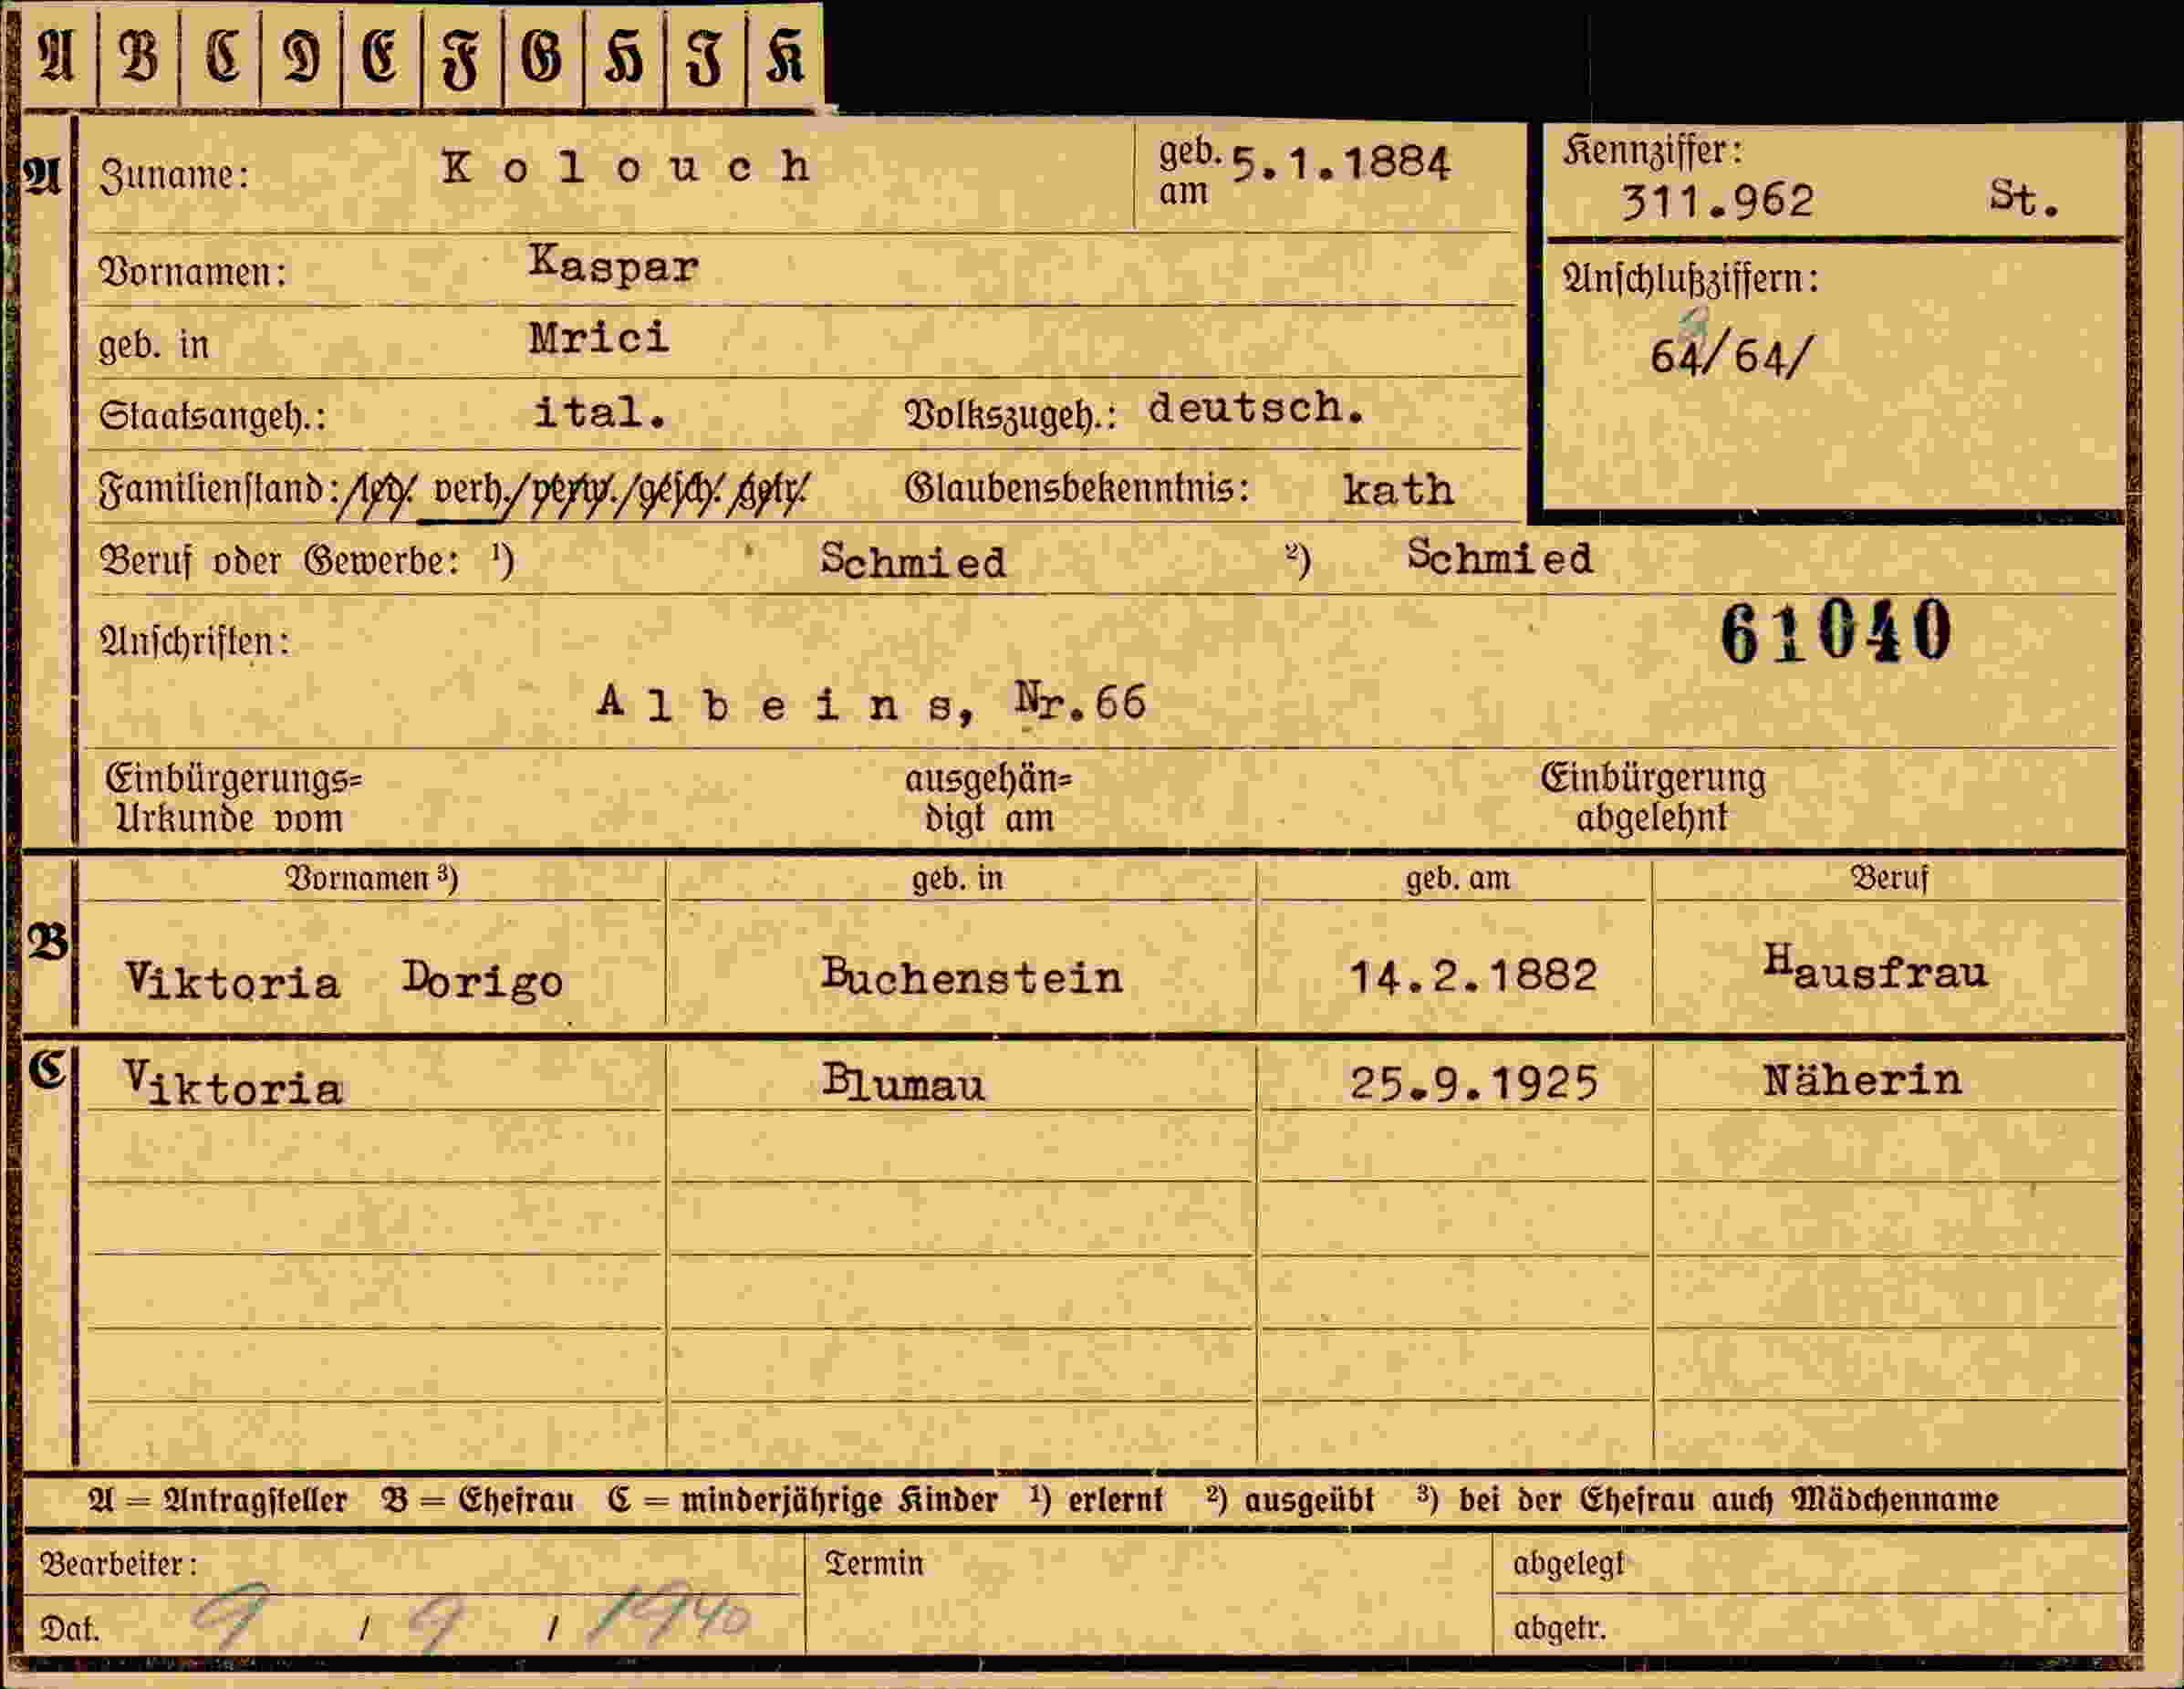 A B C D E F G H I K
A Zuname: Kolouch geb. am 5.1.1884 Kennziffer: 311.962 St.
Vornamen: Kaspar
Anschlußziffern:
geb. in Mrici
64/64/
Staatsangeh.: ital. Volkszugeh.: deutsch.
Familienstand: /led. verh./verw./gesch./getr. Glaubensbekenntnis: kath
Beruf oder Gewerbe: ¹) Schmied ²) Schmied
Anschriften: 61040
Albeins, Nr.66
Einbürgerungs= ausgehän= Einbürgerung
Urkunde vom digt am abgelehnt
Vornamen ³) geb. in geb. am Beruf
B Viktoria Dorigo Buchenstein 14.2.1882 Hausfrau
C Viktoria Blumau 25.9.1925 Näherin
A = Antragsteller B = Ehefrau C = minderjährige Kinder ¹) erlernt ²) ausgeübt ³) bei der Ehefrau auch Mädchenname
Bearbeiter: Termin abgelegt
Dat. 9 / 9 / 1940 abgetr.